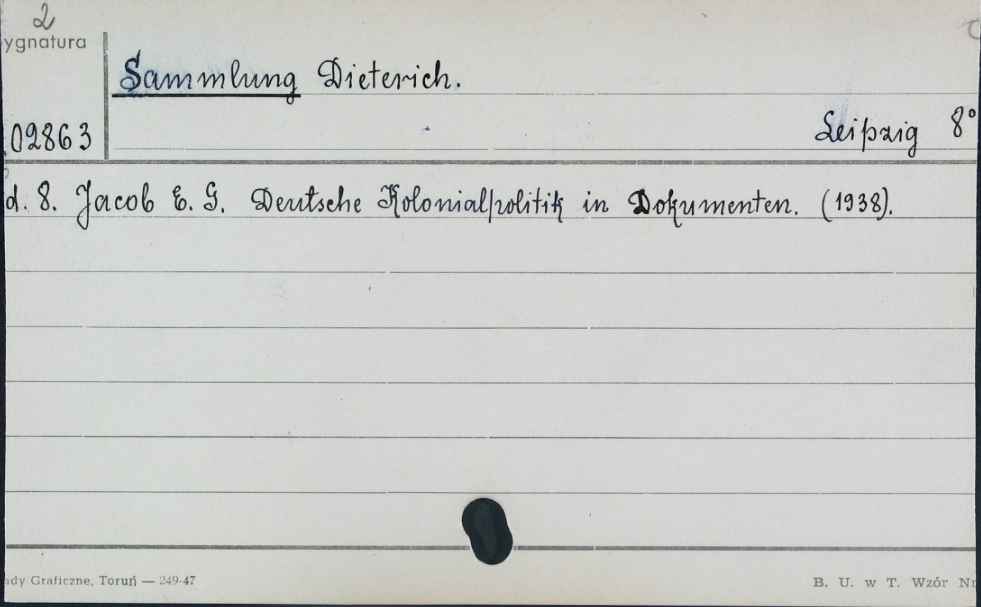 2
ygnatura
Sammlung Dieterich.
02863
Leipzig 8°
d. 8. Jacob E. G. Deutsche Kolonialpolitik in Dokumenten. (1938).
ady Graficzne, Toruń — 249-47
B. U. w T. Wzór Nr